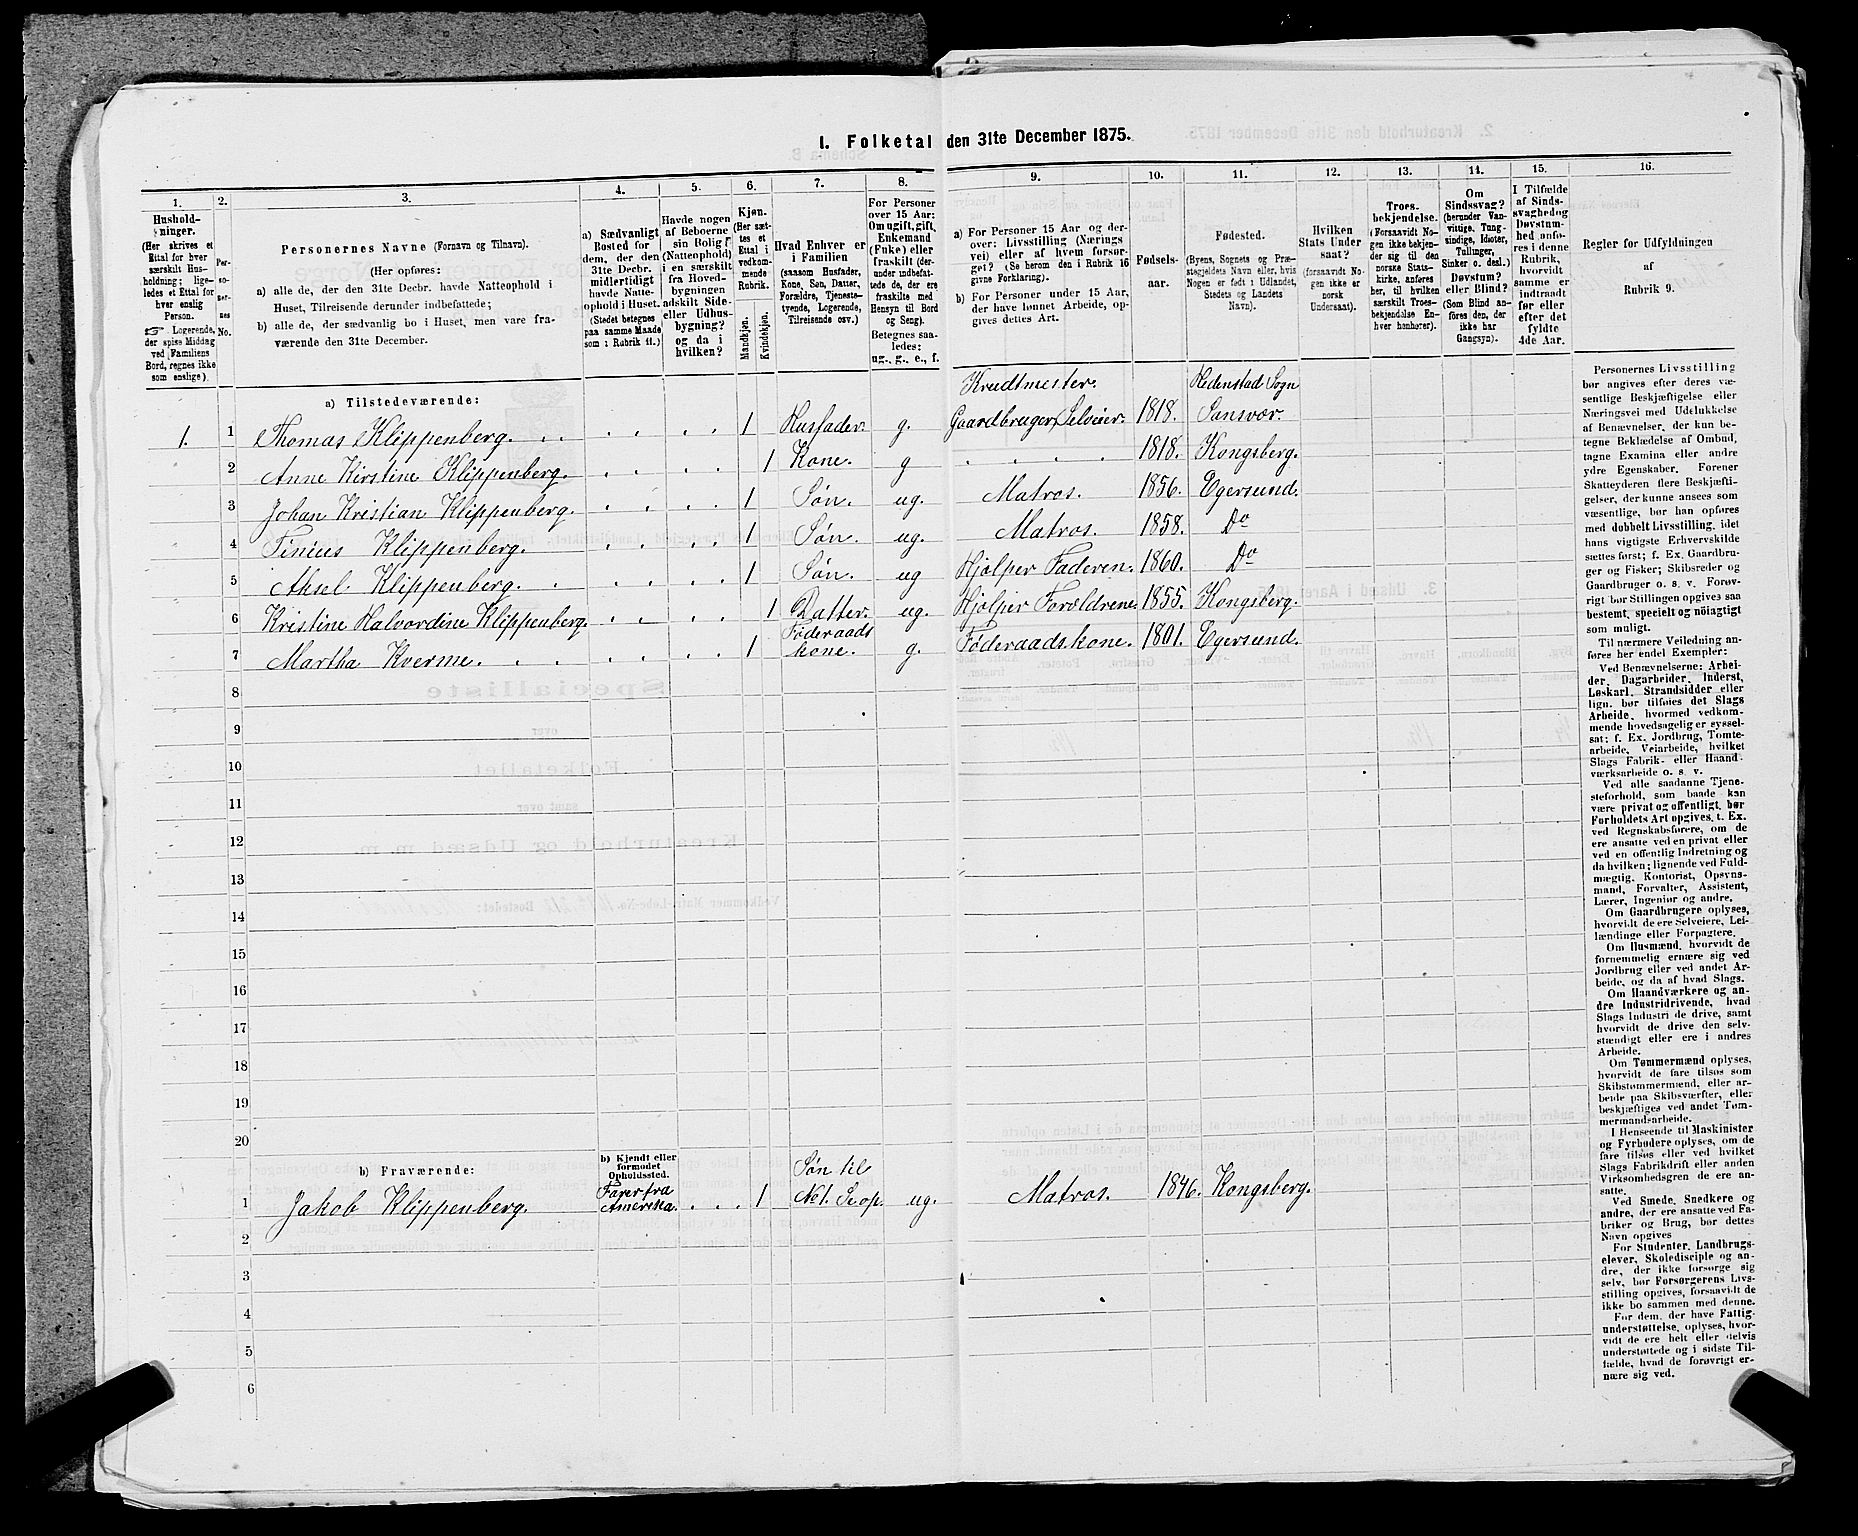 1. Folketal den 31te December 1875.
1. 2. 3. 4. 5. 6. 7. 8. 9. 10. 11. 12. 13. 14. 15. 16.
Hushold-
ninger.
(Her skrives et
Ettal for hver
særskilt Hus-
holdning; lige-
ledes et Ettal for
hver enslig
Person.
Logerende,
der spise Middag
ved Familiens
Bord, regnes ikke
som enslige).
Per-
so-
ner-
nes
No.
Personernes Navne (Fornavn og Tilnavn).
(Her opføres:
a) alle de, der den 31te Decbr. havde Natteophold i
Huset, Tilreisende derunder indbefattede;
b) alle de, der sædvanlig bo i Huset, men vare fra-
værende den 31te December.
a) Sædvanligt
Bosted for
dem, der den
31te Decbr.
midlertidigt
havde Natte-
ophold i Huset.
(Stedet betegnes
paa samme Maade
som i Rubrik 11.)
Havde nogen
af Beboerne
sin Bolig
(Natteophold)
i en særskilt
fra Hoved-
bygningen
adskilt Side-
eller Udhus-
bygning?
og da i
hvilken?
Kjøn.
(Her sæt-
tes et
Ettal i
vedkom-
mende
Rubrik.
Mandkjøn.
Kvindekjøn.
Hvad Enhver er
i Familien
(saasom Husfader,
Kone, Søn, Datter,
Forældre, Tjeneste-
tyende, Logerende,
Tilreisende osv.)
For Personer
over 15 Aar:
Om ugift, gift,
Enkemand
(Enke) eller
fraskilt (der-
under indbefat-
tede de, der ere
fraskilte med
Hensyn til Bord
og Seng).
Betegnes saa-
ledes:
ug., g., e., f.
a) For Personer 15 Aar og der-
over: Livsstilling (Nærings
vei) eller af hvem forsør-
get? (Se herom den i Rubrik 16
givne Forklaring).
b) For Personer under 15 Aar,
der have lønnet Arbeide, op-
gives dettes Art.
Fødsels-
aar.
Fødested.
(Byens, Sognets og Præ-
stegjeldets Navn eller, hvis
Nogen er født i Udlandet,
Stedets og Landets
Navn).
Hvilken
Stats Under
saat?
(forsaavidt No-
gen ikke er
norsk
Undersaat).
Troes-
bekjendelse.
(Forsaavidt No-
gen ikke bekjen-
der sig til den
norske Stats-
kirke, anføres
her, til hvilken
særskilt Troes-
bekjendelse En-
hver henhører).
Om
Sindssvag?
(herunder Van-
vittige, Tung-
sindige, Idioter,
Tullinger,
Sinker o. desl.)
Døvstum?
eller Blind?
(Som Blind an-
føres den, der
ikke har
Gangsyn).
I Tilfælde
af Sinds-
svaghed og
Døvstum-
hed anfø-
res i denne
Rubrik,
hvorvidt
samme er
indtraadt
før eller
efter det
fyldte
4de Aar.
Regler for Udfyldningen
af
Rubrik 9.
a) Tilstedeværende:
Krudtmester. Hedenstad Sogn
1. 1 Thomas Klippenberg. 1 Husfader g. Gaardbruger, Selveier. 1818. Sansvær.
2 Anne Kirstine Klippenberg. 1 Kone. g 1818. Kongsberg.
3 Johan Kristian Klippenberg. 1 Søn. ug. Matros. 1856. Egersund.
4 Tinius Klippenberg. 1 Søn. ug. Matros. 1858. Do
5 Aksel Klippenberg. 1 Søn. ug Hjælper Faderen. 1860. Do
6 Kristine Halvordine Klippenberg. 1 Datter. ug. Hjælper Forældrene 1855. Kongsberg.
7 Martha Kverme. 1 Føderaads kone. g. Føderaadskone. 1801. Egersund.
8
9
10
11
12
13
14
15
16
17
18
19
20
b) Fraværende:
b) Kjendt eller
formodet
Opholdssted.
1 Jakob Klippenberg. Farer fra Amerika. 1 Søn til No 1. ug. Matros. 1846. Kongsberg.
2
3
4
5
6
Personernes Livsstilling
bør angives efter deres væ-
sentlige Beskjæftigelse eller
Næringsvei med Udelukkelse
af Benævnelser, der kun be-
tegne Beklædelse af Ombud,
tagne Examina eller andre
ydre Egenskaber. Forener
Skatteyderen flere Beskjæfti-
gelser, der kunne ansees som
væsentlige, bør han opføres
med dobbelt Livsstilling, idet
hans vigtigste Erhvervskilde
sættes først; f. Ex. Gaardbru-
ger og Fisker; Skibsreder og
Gaardbruger o. s. v. Forøv-
rigt bør Stillingen opgives saa
bestemt, specielt og nøiagtigt
som muligt.
Til nærmere Veiledning an-
føres her endel Exempler:
Ved Benævnelserne: Arbei-
der, Dagarbeider, Inderst,
Løskarl, Strandsidder eller
lign. bør tilføies det Slags
Arbeide, hvormed vedkom-
mende hovedsagelig er syssel-
sat; f. Ex. Jordbrug, Tomte-
arbeide, Veiarbeide, hvilket
Slags Fabrik- eller Haand-
værksarbeide o. s. v.
Ved alle saadanne Tjene-
steforhold, som baade kan
være privat og offentligt, bør
Forholdets Art opgives, t. Ex.
ved Regnskabsførere, om de
ere ansatte ved en privat eller
ved en offentlig Indretning og
da hvilken; lignende ved Fuld-
mægtig, Kontorist, Opsyns-
mand, Forvalter, Assistent,
Lærer, Ingeniør og andre.
Om Gaardbrugere oplyses,
hvorvidt de ere Selveiere, Lei-
lændinge eller Forpagtere.
Om Husmænd, hvorvidt de
fornemmelig ernære sig ved
Jordbrug eller ved andet Ar-
beide, og da af hvad Slags.
Om Haandværkere og an-
dre Industridrivende, hvad
Slags Industri de drive, samt
hvorvidt de drive den selv-
stændigt eller ere i andres
Arbeide.
Om Tømmermænd oplyses,
hvorvidt de fare tilsøs som
Skibstømmermænd, eller ar-
beide paa Skibsværfter, eller
beskjæftiges ved andet Tøm-
mermandsarbeide.
I Henseende til Maskinister
og Fyrbødere oplyses, om de
fare tilsøs eller ved hvilket
Slags Fabrikdrift eller anden
Virksomhedsgren de ere an-
satte.
Ved Smede, Snedkere og
andre, der ere ansatte ved Fa-
briker og Brug, bør dettes
Navn opgives
For Studenter, Landbrugs-
elever, Skoledisciple og an-
dre, der ikke forsørge sig
selv, bør Forsørgerens Livs-
stilling opgives, forsaavidt de
ikke bo sammen med denne.
For dem, der have Fattig-
understøttelse, oplyses, hvor-
vidt de ere helt eller delvis
understøttede og i sidste Til-
fælde, hvad de forøvrigt er-
nære sig ved.